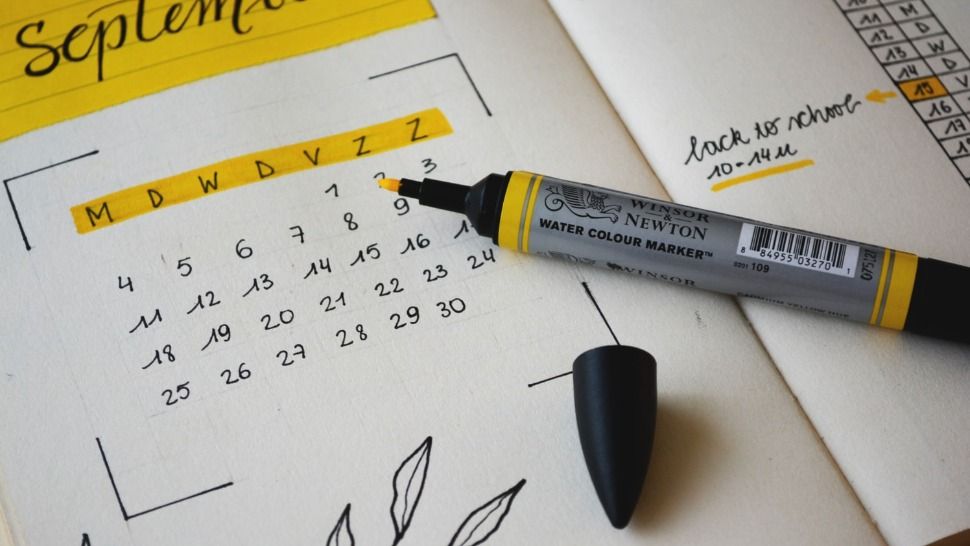 Septem
M D W D V Z Z
1 2 3
4 5 6 7 8 9
11 12 13 14 15 16
18 19 20 21 22 23 24
25 26 27 28 29 30
WINSOR
&
NEWTON
WATER COLOUR MARKER™
8 84955 03270 1
0201 109
WINSOR
back to school
10-14u
11 M
12 D
13 W
14 D
15 V
16
17